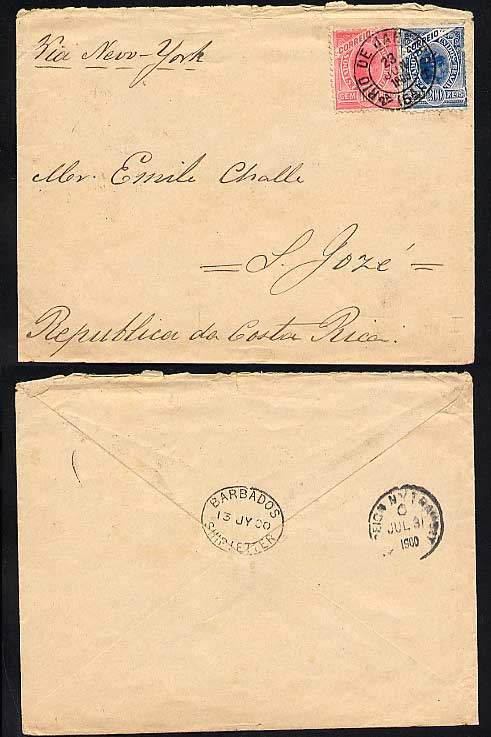 Via New-York
CORREIO
CEM
RIO DE JANE
23
CORREIO
200 REIS
Mer. Emile Challe
= S. Jozé =
Republica da Costa Rica.
BARBADOS
13 JY 00
SHIP LETTER
EIGN N.Y. TRANSIT
JUL 31
1900